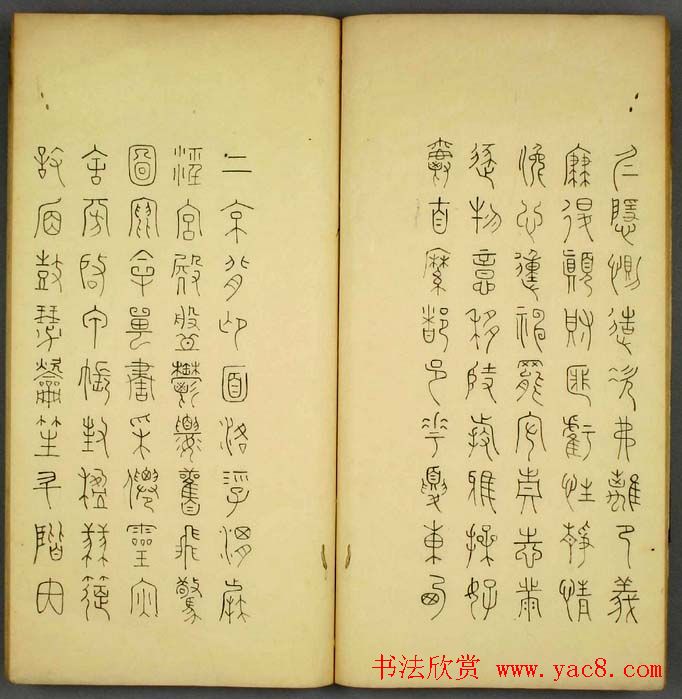 仁隱惻造次弗離節義
廉退顛沛匪虧性靜情
逸心動神疲守真志滿
逐物意移堅持雅操好
爵自縻都邑華夏東西
二京背邙面洛浮渭據
涇宮殿盤鬱樓觀飛驚
圖寫禽獸畫彩仙靈丙
舍傍啟甲帳對楹肆筵
設席鼓瑟吹笙升階納
书法欣赏 www.yac8.com